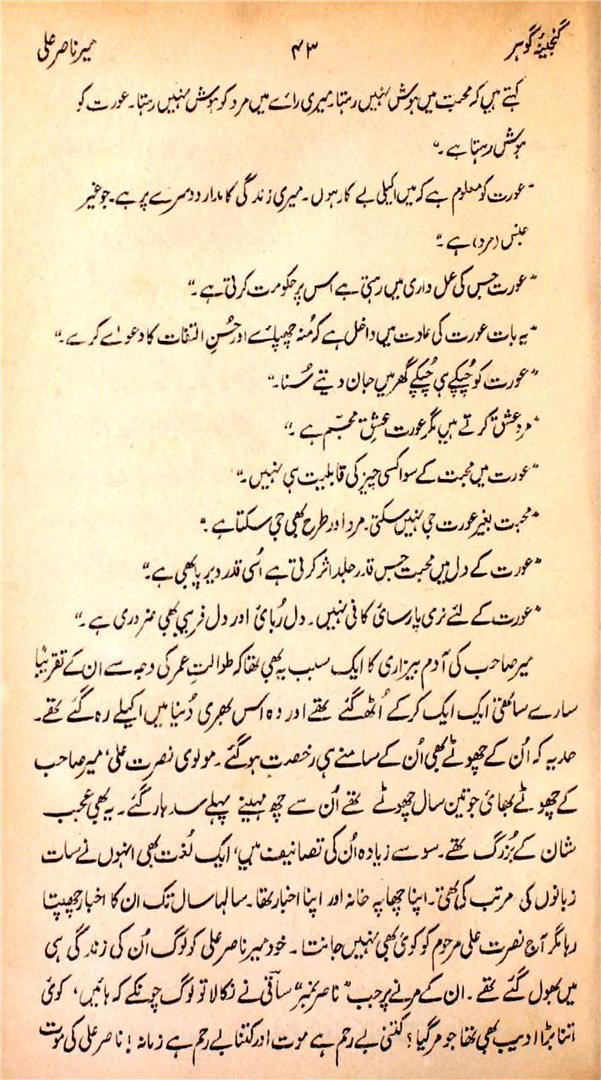 گنجینۂ گوہر ۴۳ میر ناصر علی
کہتے ہیں کہ محبت میں ہوش نہیں رہتا۔ میری رائے میں مرد کو ہوش نہیں رہتا۔ عورت کو
ہوش رہتا ہے۔"
"عورت کو معلوم ہے کہ میں اکیلی بے کار ہوں۔ میری زندگی کا مدار دوسرے پر ہے۔ جو غیر
جنس (مرد) ہے۔"
"عورت جس کی عمل داری میں رہتی ہے اس پر حکومت کرتی ہے۔"
"یہ بات عورت کی عادت میں داخل ہے کہ مُنہ چھپائے اور حُسنِ التفات کا دعوے کرے۔"
"عورت کو چُپکے ہی چُپکے گھر میں جان دیتے سُنا۔"
"مرد عشق کرتے ہیں مگر عورت عشقِ مجسّم ہے۔"
"عورت میں محبت کے سوا کسی چیز کی قابلیت ہی نہیں۔"
"محبت بغیر عورت جی نہیں سکتی۔ مرد اور طرح بھی جی سکتا ہے۔"
"عورت کے دل میں محبت جس قدر جلد اثر کرتی ہے اُسی قدر دیرپا بھی ہے۔"
"عورت کے لئے نری پارسائی کافی نہیں۔ دل رُبائی اور دل فریبی بھی ضروری ہے۔"
میر صاحب کی آدم بیزاری کا ایک سبب یہ بھی تھا کہ طوالتِ عمر کی وجہ سے ان کے تقریباً
سارے ساتھی ایک ایک کرکے اُٹھ گئے تھے اور وہ اس بھری دُنیا میں اکیلے رہ گئے تھے۔
حد یہ کہ اُن کے چھوٹے بھی اُن کے سامنے ہی رخصت ہوگئے۔ مولوی نصرت علی، میر صاحب
کے چھوٹے بھائی جو تین سال چھوٹے تھے اُن سے چھ مہینے پہلے سدھار گئے۔ یہ بھی عجب
شان کے بزرگ تھے۔ سو سے زیادہ اُن کی تصانیف ہیں، ایک لُغت بھی انہوں نے سات
زبانوں کی مرتب کی تھی۔ اپنا چھاپہ خانہ اور اپنا اخبار تھا۔ سالہا سال تک ان کا اخبار چھپتا
رہا مگر آج نصرت علی مرحوم کو کوئی بھی نہیں جانتا۔ خود میر ناصر علی کو لوگ اُن کی زندگی ہی
میں بھول گئے تھے۔ ان کے مرنے پر جب "ناصر نمبر" ساقی نے نکالا تو لوگ چونکے کہ ہائیں، کوئی
اتنا بڑا ادیب بھی تھا جو مر گیا؟ کتنی بے رحم ہے موت اور کتنا بے رحم ہے زمانہ! ناصر علی کی موت